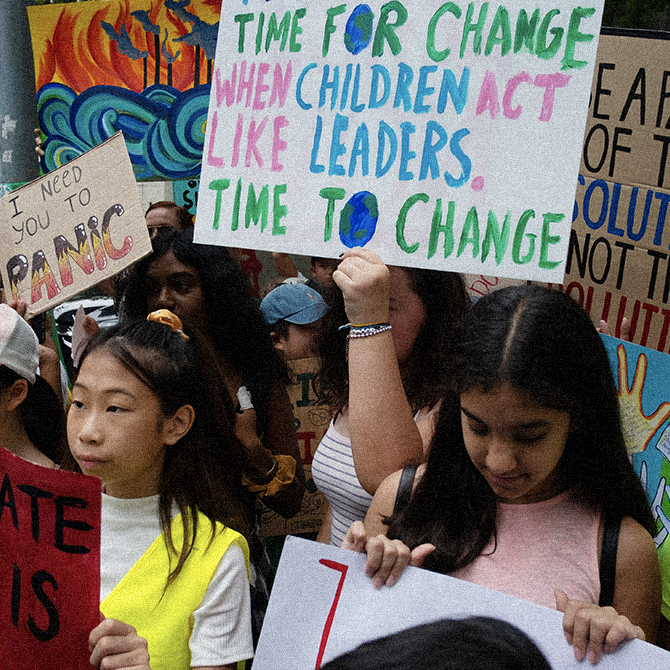 TIME FOR CHANGE
WHEN CHILDREN ACT
LIKE LEADERS.
TIME TO CHANGE
I NEED
YOU TO
PANIC
OF T
SOLUT
NOT T
POLLUTI
ATE
IS